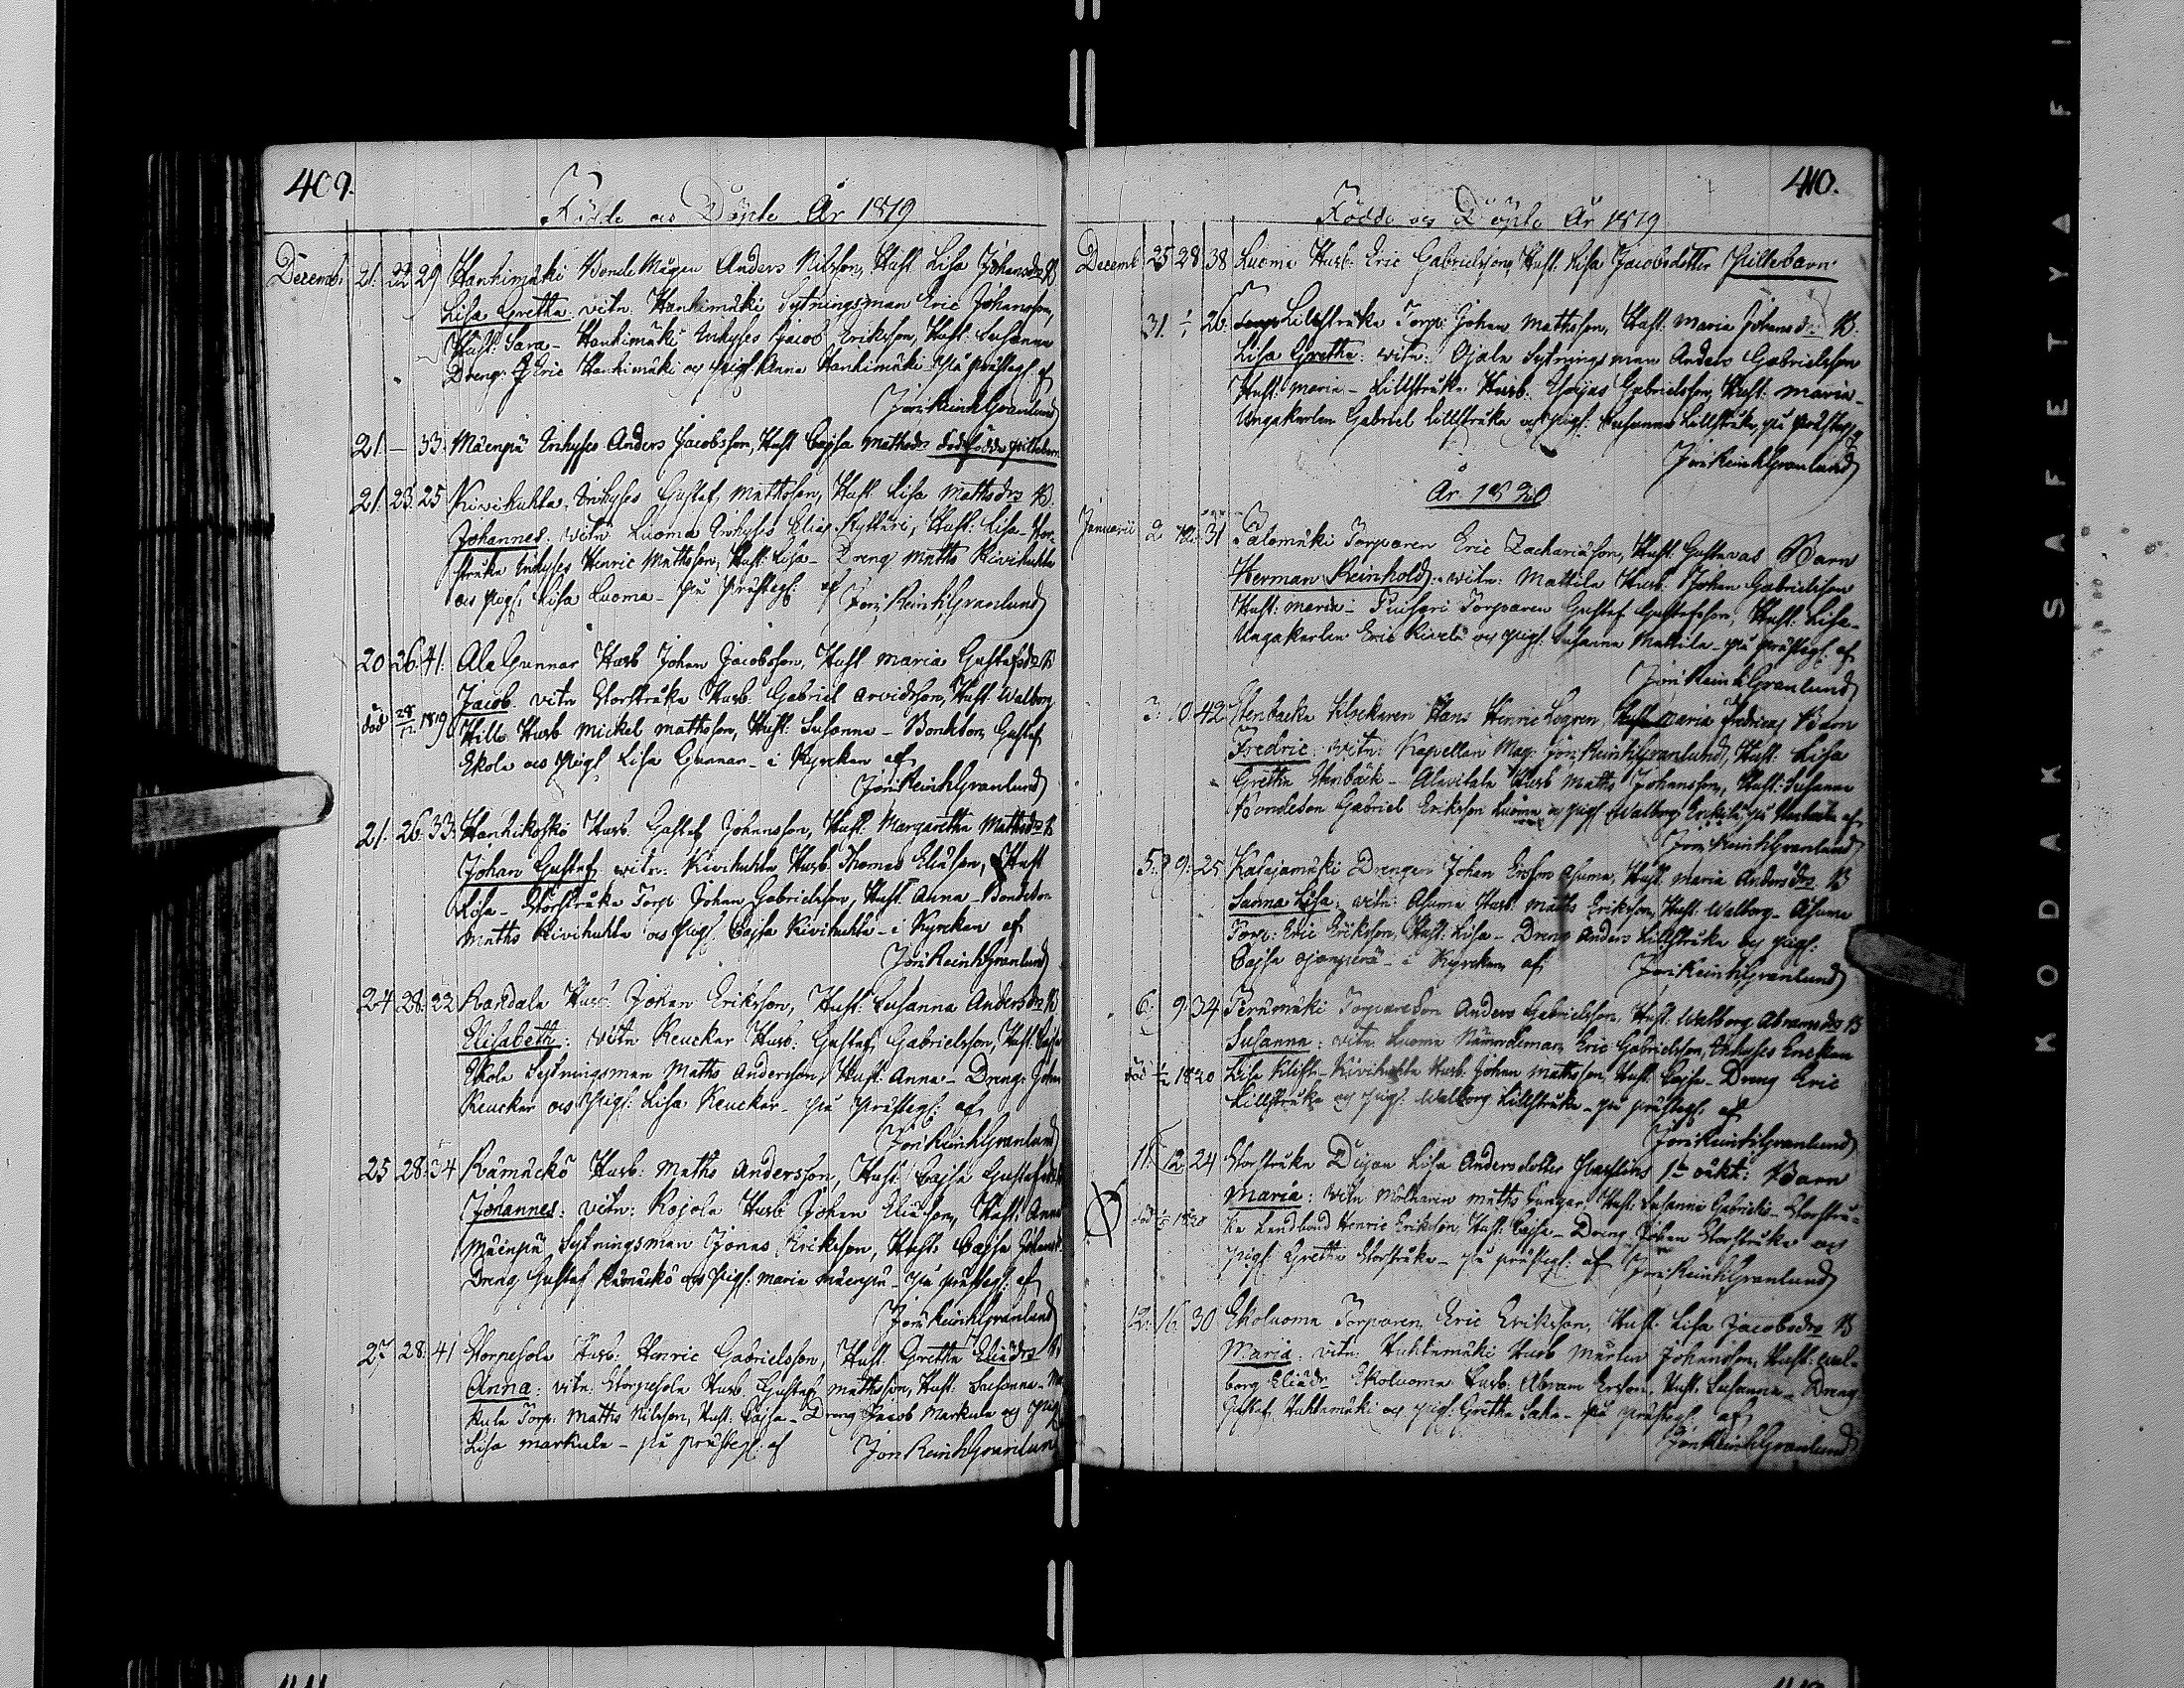 409.
Födde och Döpte År 1819
Decemb: 21. 22 29 Hanhimäki Bonde Mågen Anders Nilsson, Hust. Lisa Johansdr B.
Lisa Gretha. vitn: Hanhimäki Sytningsman Eric Johansson,
Hust: Sara - Hanhimäki Inhyses Jacob Eriksson, Hust: Susanna
Dreng: Eric Hanhimäki och pig: Anna Hanhimäki på prästeg: af
Jon: Reinh Granlund
21. - 33. Mäenpä Inhyses Anders Jacobsson, Hust Cajsa Mathsdr dödfödde
21. 23. 25 Kivihuhta Inhyses Gustaf Mathsson, Hust. Lisa Mathsdrs B.
Johannes. vitn Luoma Inhyses Elias Kyttäri, Hust: Lisa - Stor-
stråka Inhyses Henric Mathsson, Hust: Lisa - Dreng Maths Kivihuhta
och pig: Lisa Luoma - på Prästeg: af Jon: Reinh Granlund
20 26. 41. Ala Gunnar Husb Johan Jacobsson, Hust Maria Gustafsdr B
Jacob. vitn Storstråka Husb. Gabriel Arvidsson, Hust Walborg
död 28/12 1819 Hillo Husb Mickel Mathsson, Hust: Susanna - Bondeson Gustaf
Ekola och Pig: Lisa Gunnar - i Kyrckan af
Jon: Reinh Granlund
21. 26. 33. Hanhikoski Husb. Gustaf Johansson, Hust: Margaretha Mathsdr B
Johan Gustaf vitn: Kivihuhta Husb. Thomas Eliasson, Hust
Lisa - Storstråka Torp Johan Gabrielsson, Hust Anna - Bondeson
Maths Kivihuhta och Pig: Cajsa Kivihuhta - i Kyrckan af
Jon: Reinh Granlund
24 28. 22 Randala Husb: Johan Eriksson, Hust: Susanna Andersdr B
Elisabeth: vitn Keucker Husb: Gustaf Gabrielsson, Hust: Cajsa
Ekola Sytningsman Maths Andersson, Hust: Anna - Dreng: Johan
Keucker och Pig: Lisa Keucker - på Prästeg: af
Jon: Reinh Granlund
25 28. 34 Rämäckö Husb: Maths Andersson, Hust Cajsa
Johannes: vitn: Rojola Husb Johan Eliasson, Hust: Anna
Mäenpä Sytningsman Jonas Eriksson, Hust: Cajsa
Dreng Gustaf Rämäckö och Pig: Maria Mäenpä - på prästeg: af
Jon: Reinh Granlund
27 28. 41 Storpesola Husb: Henric Gabrielsson, Hust: Gretha Eliædr
Anna: vitn: Storpesola Husb. Gustaf Mathsson, Hust: Susanna - Mar
kula Torp: Maths Nilsson, Hust: Cajsa - Dreng Jacob Markula och Pig
Lisa Markula - på prästeg: af Jon: Reinh Granlund
410.
Födde och Döpte År 1819
Decemb 25 28 38 Luoma Husb: Eric Gabrielsson, Hust: Lisa Jacobsdotter
31. 1/1 26. Lillstråka Torp: Johan Mathsson, Hust: Maria Johansdr B.
Lisa Gretha: vitn: Ojala Sytningsman Anders Gabrielsson
Hust: Maria - Lillstråka Husb: Gabrielsson, Hust: Maria -
Ungakarlen Gabriel Lillstråka och pig: Susanna Lillstråka, på prästeg:
Jon: Reinh Granlund
År 1820
Januarii 2 31 Palomäki Torparen Eric Zachariæson, Hust. Gustavas Barn
Herman Reinhold: vitn: Mattila Husb: Johan Gabrielsson
Hust: Maria - Torparen Gustaf Gustafsson, Hust: Lisa -
Ungakarlen Eric Kivelä och pig: Susanna Mattila - på prästeg: af
Jon: Reinh Granlund
3: 10. 42 Stenbacka Klockaren Hans Henric Logren, Hust Maria Fredricas Barn
Fredric: vitn: Kapellan Mag: Jon: Reinh Granlund, Hust: Lisa
Gretha Stenbäck - Alavitala Husb Maths Johansson, Hust: Susanna
Bondeson Gabriel Eriksson Luoma och pig Walborg af
Jon: Reinh Granlund
5: 9: 25 Katajamäki Drengen Johan Ersson Asuma, Hust: Maria Andersdr B
Sanna Lisa: vitn: Asuma Husb: Maths Eriksson, Hust: Walborg - Asuma
Torp: Eric Eriksson, Hust: Lisa - Dreng Anders Lillstråka och pig:
Cajsa Ojanperä - i Kyrckan af Jon: Reinh Granlund
6: 9. 34 Perämäki Torpareson Anders Gabrielsson, Hust: Walborg Abramsdr B
Susanna: vitn Luoma Nämndeman Eric Gabrielsson, Inhyses Enckan
död 1820 Lisa - Kivihuhta Husb Johan Mathsson, Hust: Cajsa - Dreng Eric
Lillstråka och pig: Walborg Lillstråka - på prästeg: af
Jon: Reinh Granlund
11. 12. 24 Storstråka Pigan Lisa Andersdotter 1ta oäkt: Barn
Maria: vitn Molnaren Maths Hust: Susanna Gabrielsdr - Storstrå-
död 1820 ka Landbond Henric Eriksson, Hust: Cajsa - Dreng Johan Storstråka och
pig: Gretha Storstråka - på prästeg: af Jon: Reinh Granlund
12: 16. 30 Ekoluoma Torparen Eric Eriksson, Hust: Lisa Jacobsdrs B
Maria: vitn: Huhtamäki Husb Mårten Johansson, Hust: Wal-
borg Eliædr Ekoluoma Husb: Abram Ersson, Hust: Susanna - Dreng
Gustaf Huhtamäki och pig: Gretha Saha - på prästeg: af
Jon: Reinh Granlund
KODAK SAFETY A FI